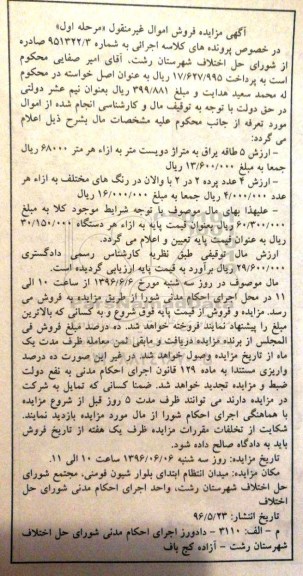 آگهی مزایده فروش اموال غیرمنقول «مرحله اول»
در خصوص پرونده های کلاسه اجرائی به شماره ۹۵۱۳۲۲/۳ صادره
از شورای حل اختلاف شهرستان رشت، آقای امیر صفایی محکوم
است به پرداخت ۱۷/۶۲۷/۹۹۵ ریال به عنوان اصل خواسته در محکوم
له محمد سعید هدایت و مبلغ ۳۹۹/۸۸۱ ریال بعنوان نیم عشر دولتی
در حق دولت با توجه به توقیف مال و کارشناسی انجام شده از اموال
مورد تعرفه از جانب محکوم علیه مشخصات مال بشرح ذیل اعلام
می گردد:
- ارزش ۵ طاقه یراق به متراژ دویست متر به ازاء هر متر ۶۸۰۰۰ ریال
جمعا به مبلغ ۱۳/۶۰۰/۰۰۰ ریال
- ارزش ۴ عدد پرده ۲ در ۲ با والان در رنگ های مختلف به ازاء هر
عدد ۴/۰۰۰/۰۰۰ ریال جمعا به مبلغ ۱۶/۰۰۰/۰۰۰ ریال
- علیهذا بهای مال موصوف با توجه شرایط موجود کلا به مبلغ
۶۰/۳۰۰/۰۰۰ ریال بعنوان قیمت پایه به ازاء هر دستگاه ۳۰/۱۵۰/۰۰۰
ریال به عنوان قیمت پایه تعیین و اعلام می گردد.
ارزش مال توقیفی طبق نظریه کارشناس رسمی دادگستری
۲۹/۶۰۰/۰۰۰ ریال برآورد به قیمت پایه ارزیابی گردیده است.
مال موصوف در روز سه شنبه مورخ ۱۳۹۶/۶/۶ از ساعت ۱۰ الی
۱۱ در محل اجرای احکام مدنی شورا از طریق مزایده به فروش می
رسد. مزایده و فروش از قیمت پایه فوق شروع و به کسانی که بالاترین
مبلغ را پیشنهاد نمایند فروخته خواهد شد. ده درصد مبلغ فروش فی
المجلس از برنده مزایده دریافت و مابقی ثمن معامله ظرف مدت یک
ماه از تاریخ مزایده وصول خواهد شد. در غیر این صورت ده درصد
واریزی مستندا به ماده ۱۲۹ قانون اجرای احکام مدنی به نفع دولت
ضبط و مزایده تجدید خواهد شد. ضمنا کسانی که تمایل به شرکت
در مزایده دارند می توانند ظرف مدت ۵ روز قبل از شروع مزایده
با هماهنگی اجرای احکام شورا از مال مورد مزایده بازدید نمایند.
شکایت از تخلفات مقررات مزایده ظرف یک هفته از تاریخ فروش
باید به دادگاه صالح داده شود.
تاریخ مزایده: روز سه شنبه ۱۳۹۶/۰۶/۰۶ ساعت ۱۰ الی ۱۱.
مکان مزایده: میدان انتظام ابتدای بلوار شیون فومنی، مجتمع شورای
حل اختلاف شهرستان رشت، واحد اجرای احکام مدنی شورای حل
اختلاف
تاریخ انتشار: ۹۶/۵/۲۳
م - الف: ۳۱۱۰ - دادورز اجرای احکام مدنی شورای حل اختلاف
شهرستان رشت - آزاده کج باف